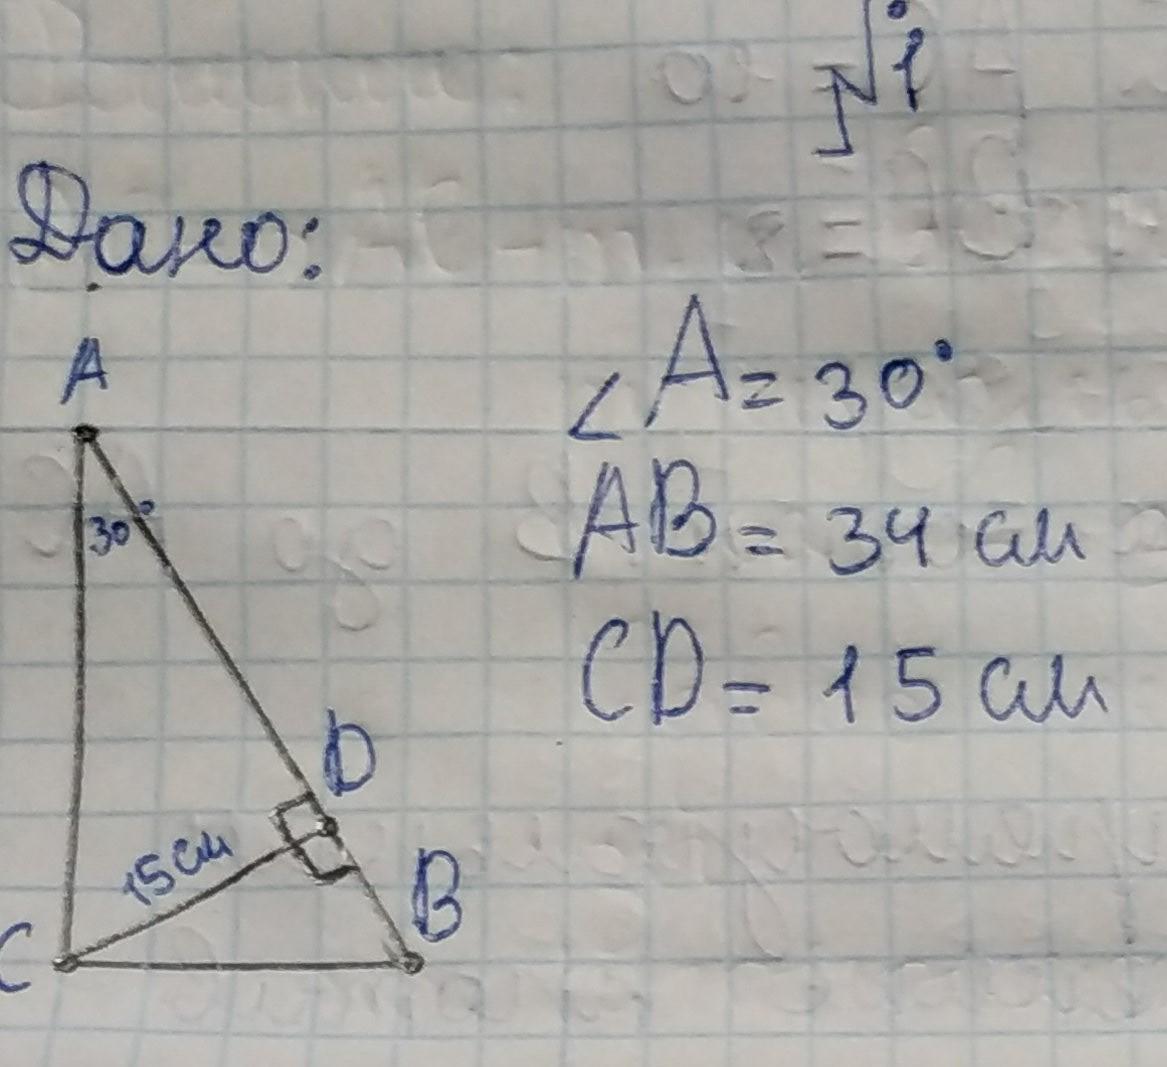 √i
Дано:
A
∠A = 30°
30°
AB = 34 см
CD = 15 см
D
15 см
B
C